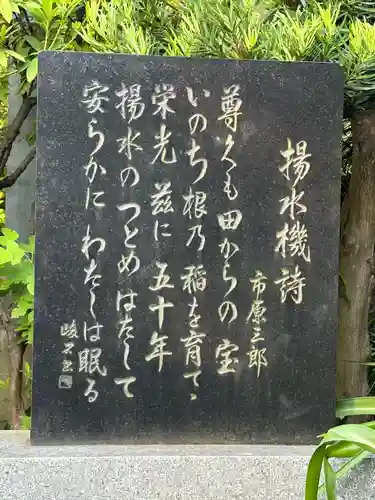 揚水機詩
市原三郎
尊くも田からの宝
いのち根乃稲を育て
栄光茲に五十年
揚水のつとめはたして
安らかにわたしは眠る